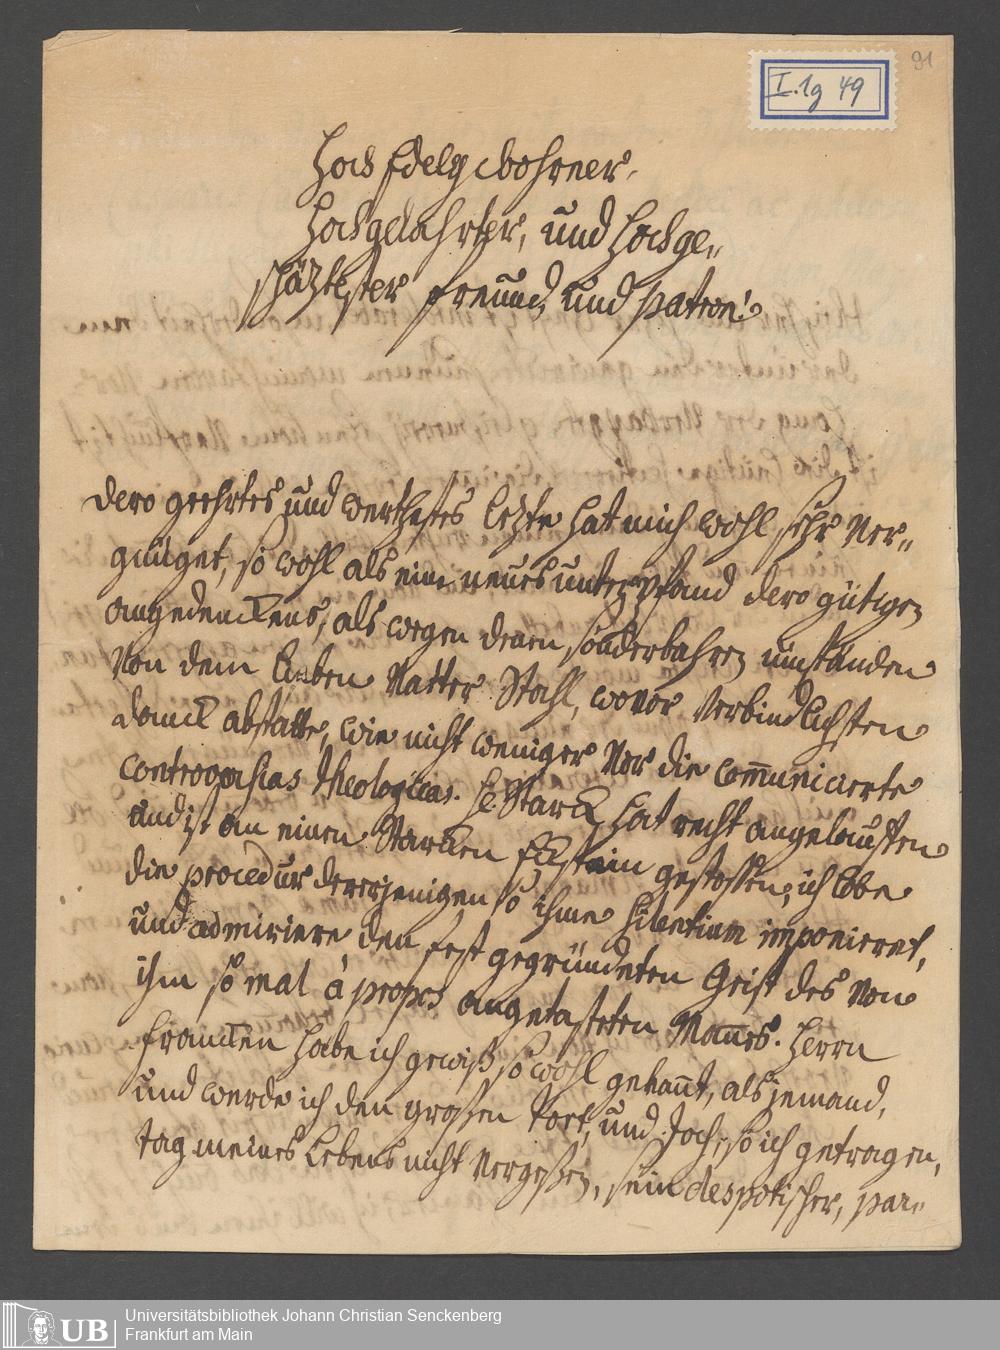 91
I.1g 49
Hoch Edelgebohrner,
Hochgelahrter, und Hochge„
schäztester Freünd, und Patron!
Dero geehrtes und werthestes lezte hat mich wohl sehr ver„
gnüget, so wohl als eine neues unterpfand dero gütigen
angedenckens, als wegen denen sonderbahren umständen
von dem lieben Vatter Stahl, wovor verbindlichsten
danck abstatte, wie nicht weniger vor die communicierte
theologicas. H. Starck hat recht angelauffen
und ist an einen Starcken Eckstein gestossen; ich lobe
die procedur dererjenigen so ihme silentium imponieret,
und admiriere den fest gegründeten Geist des von
ihm so mal à propos angetasteten Mannes. Herrn
Francken habe ich gewiß so wohl gekannt, als jemand,
und werde ich den großen Tort, und Joch, so ich getragen,
tag meines Lebens nicht vergeßen, sein despotischer, par„
UB
Universitätsbibliothek Johann Christian Senckenberg
Frankfurt am Main